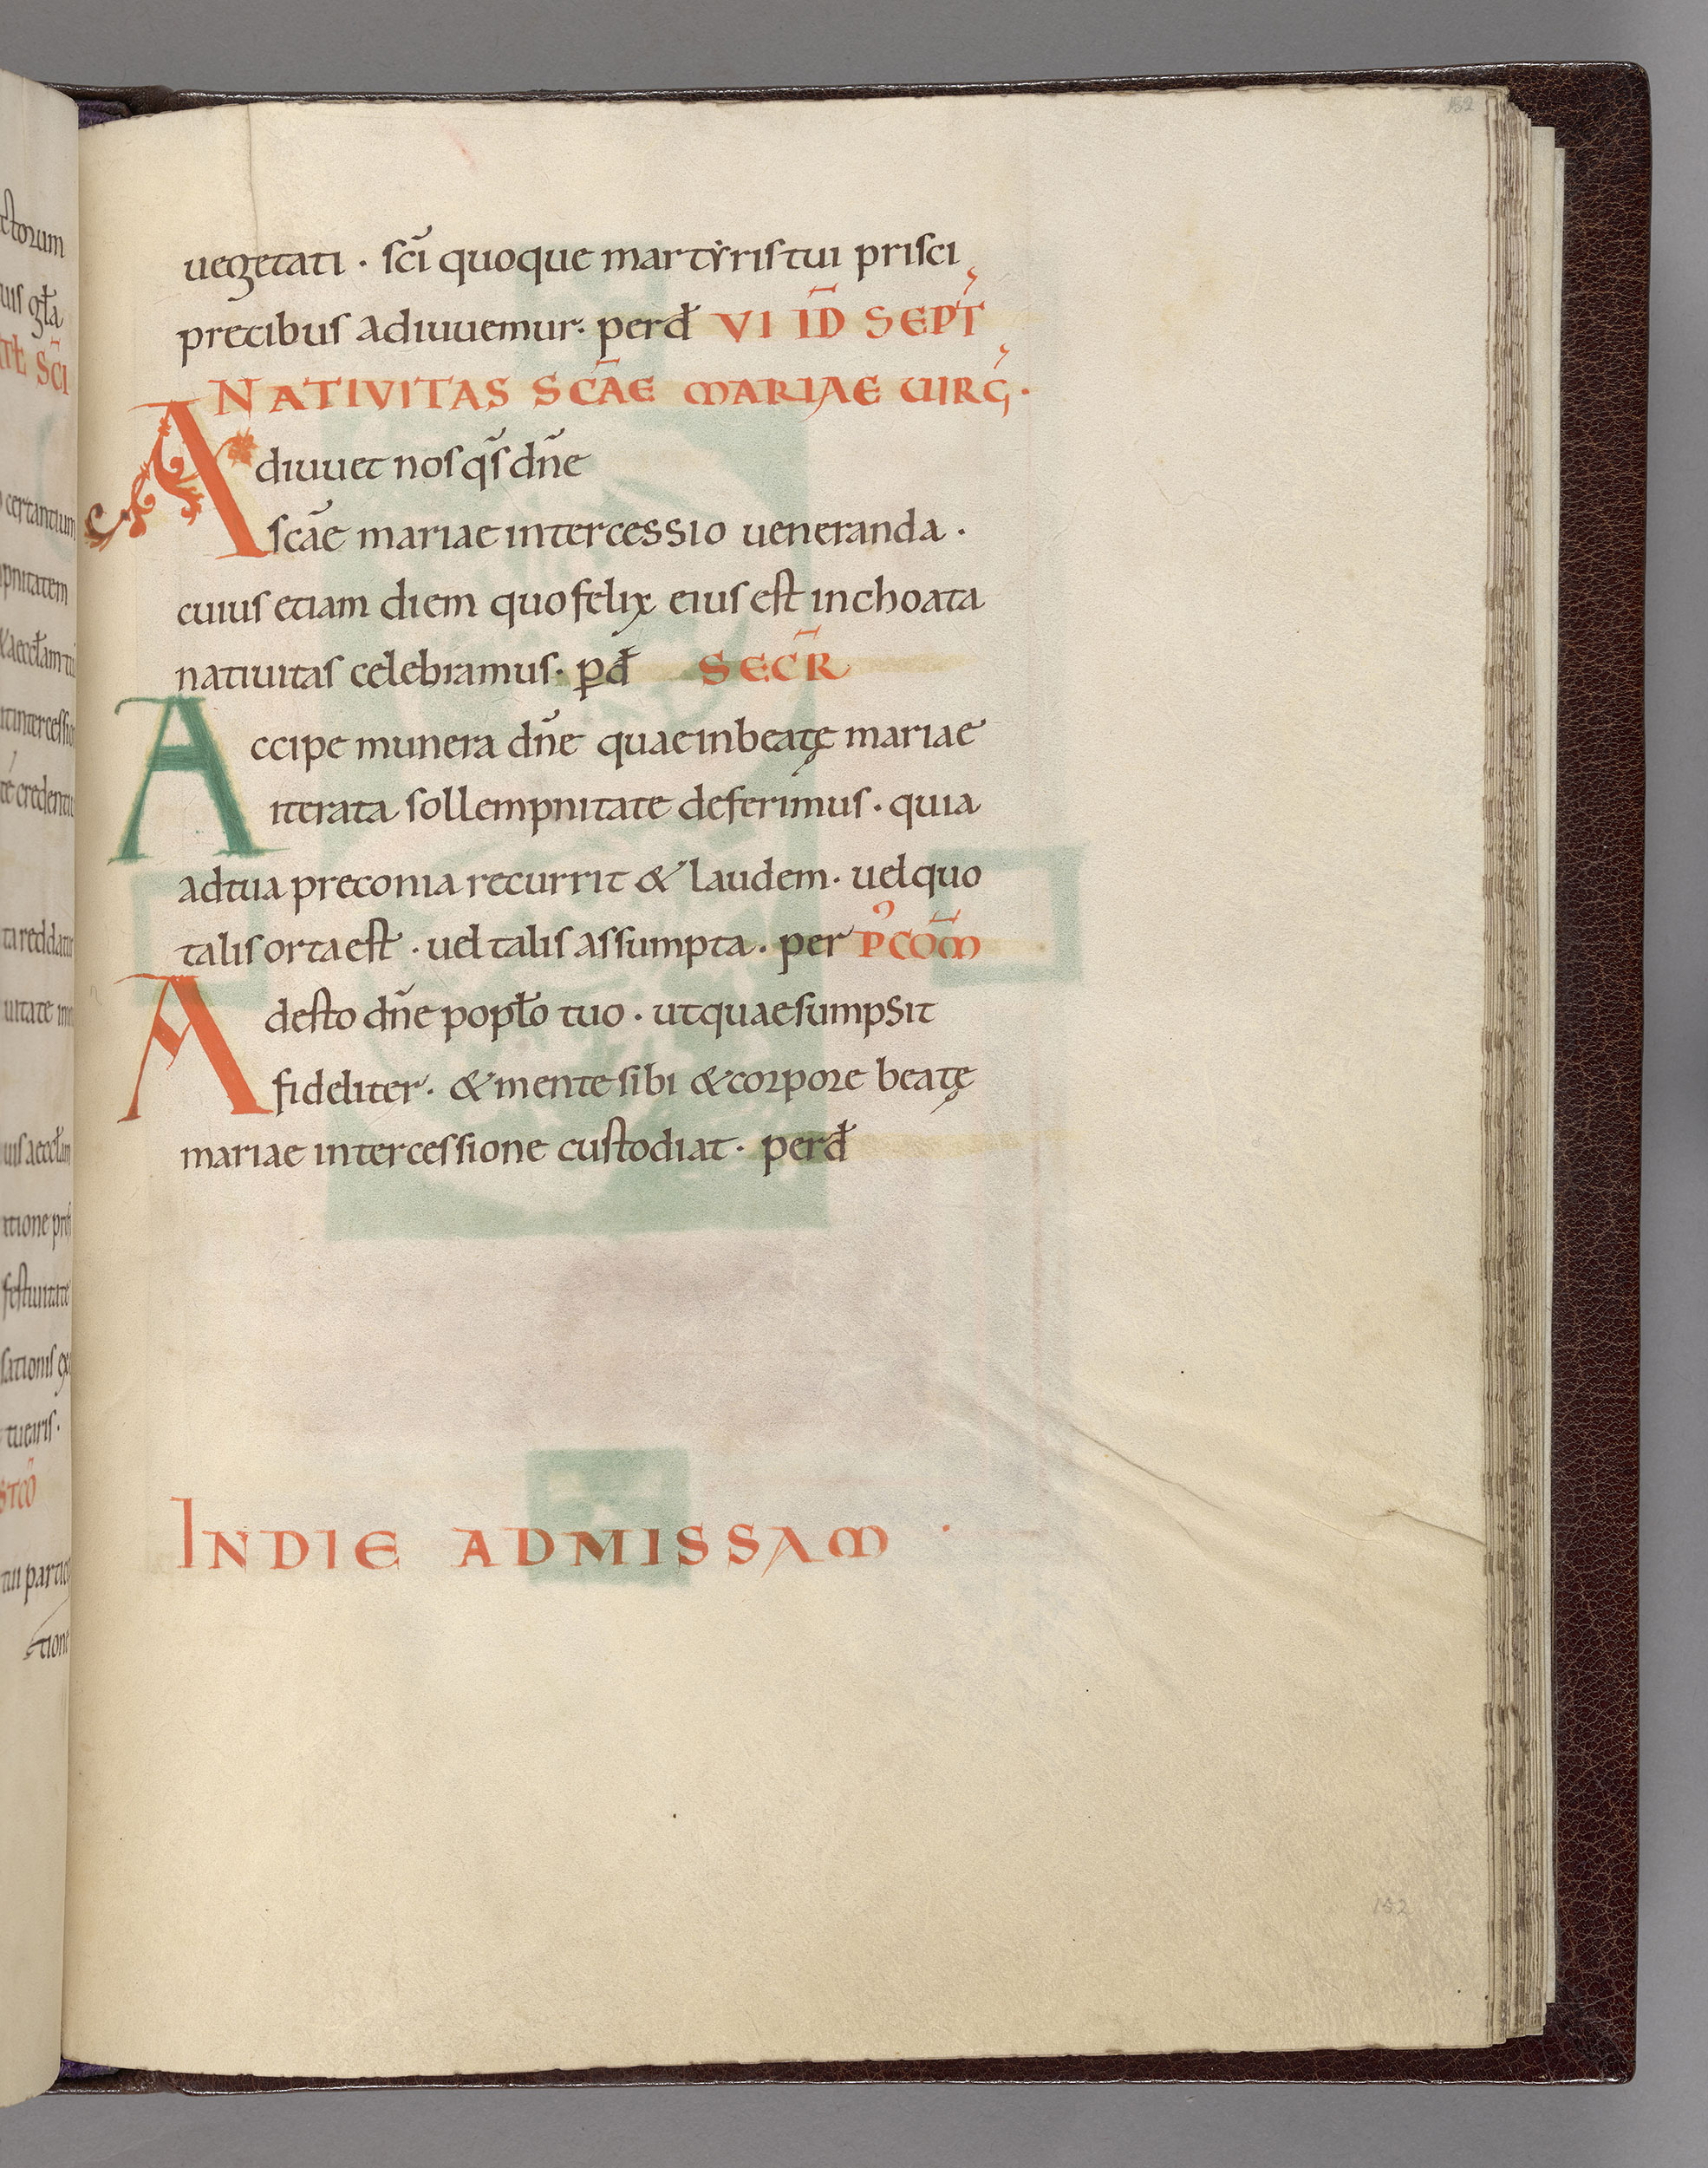 uegetati · sc̄i quoque martẏris tui prisci
precibus adiuuemur · per dƚ VI ID̄ SEPT̄
NATIVITAS SC̄AE MARIAE VIRḠ ·
Adiuuet nos qs̄ dn̄e
sc̄ae mariae intercessio ueneranda ·
cuius etiam diem quo felix eius est inchoata
natiuitas celebramus · ꝑ dƚ SECR̄
Accipe munera dn̄e quae in beatę mariae
iterata sollempnitate deferimus · quia
ad tua preconia recurrit & laudem · uel quo
talis orta est · uel talis assumpta · per P̉COM̄
Adesto dn̄e popƚo tuo · ut quae sumpsit
fideliter · & mente sibi & corpore beatę
mariae intercessione custodiat · per dƚ
IN DIE AD MISSAM ·
152